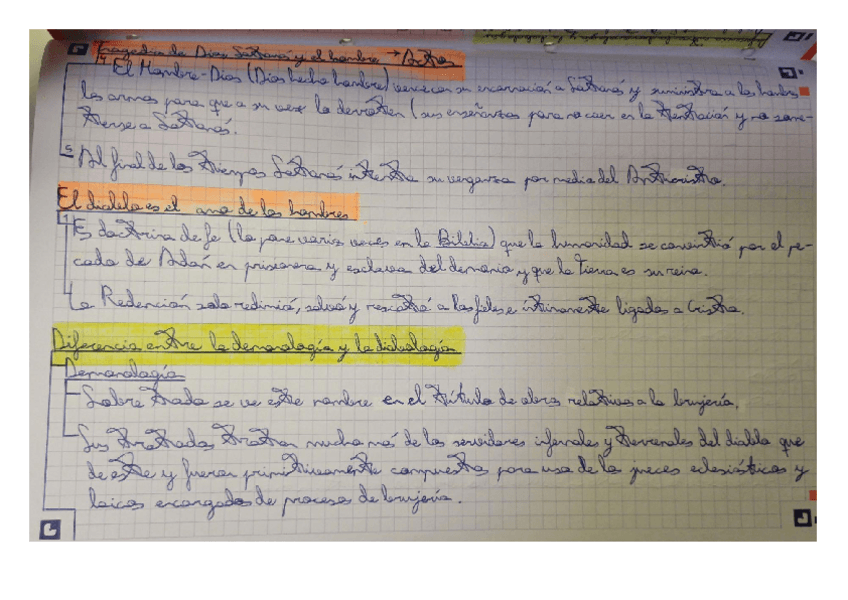 Tragedia de Dios Satanás y el hombre → Actos
4 El Hombre-Dios (Dios hecho hombre) vence con su encarnación a Satanás y suministra a los hombres
las armas para que a su vez lo derroten (sus enseñanzas para no caer en la tentación y no some-
terse a Satanás.
5 Al final de los tiempos Satanás intenta su venganza por medio del Anticristo.
El diablo es el amo de los hombres
1 Es doctrina de fe (lo pone varias veces en la Biblia) que la humanidad se convirtió por el pe-
cado de Adán en prisionera y esclava del demonio y que la tierra es su reino.
La Redención solo redimió, salvó y rescató a los fieles e íntimamente ligados a Cristo.
Diferencia entre la demonología y la diabología
Demonología
Sobre todo se ve este nombre en el título de obras relativas a la brujería.
Sus tratados tratan mucho más de los servidores infernales y terrenales del diablo que
de este y fueron primitivamente compuestos para uso de los jueces eclesiásticos y
laicos encargados de procesos de brujería.